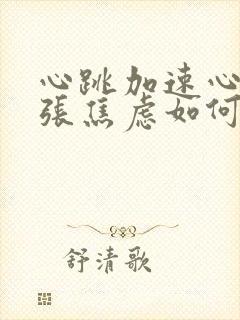 心跳加速心
張焦虑如何
舒清歌